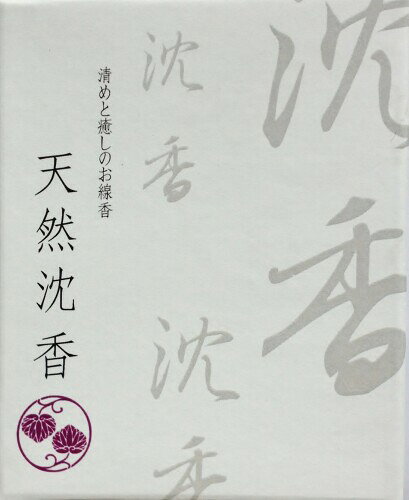 沈香
沈香
沈香
清めと癒しのお線香
天然沈香